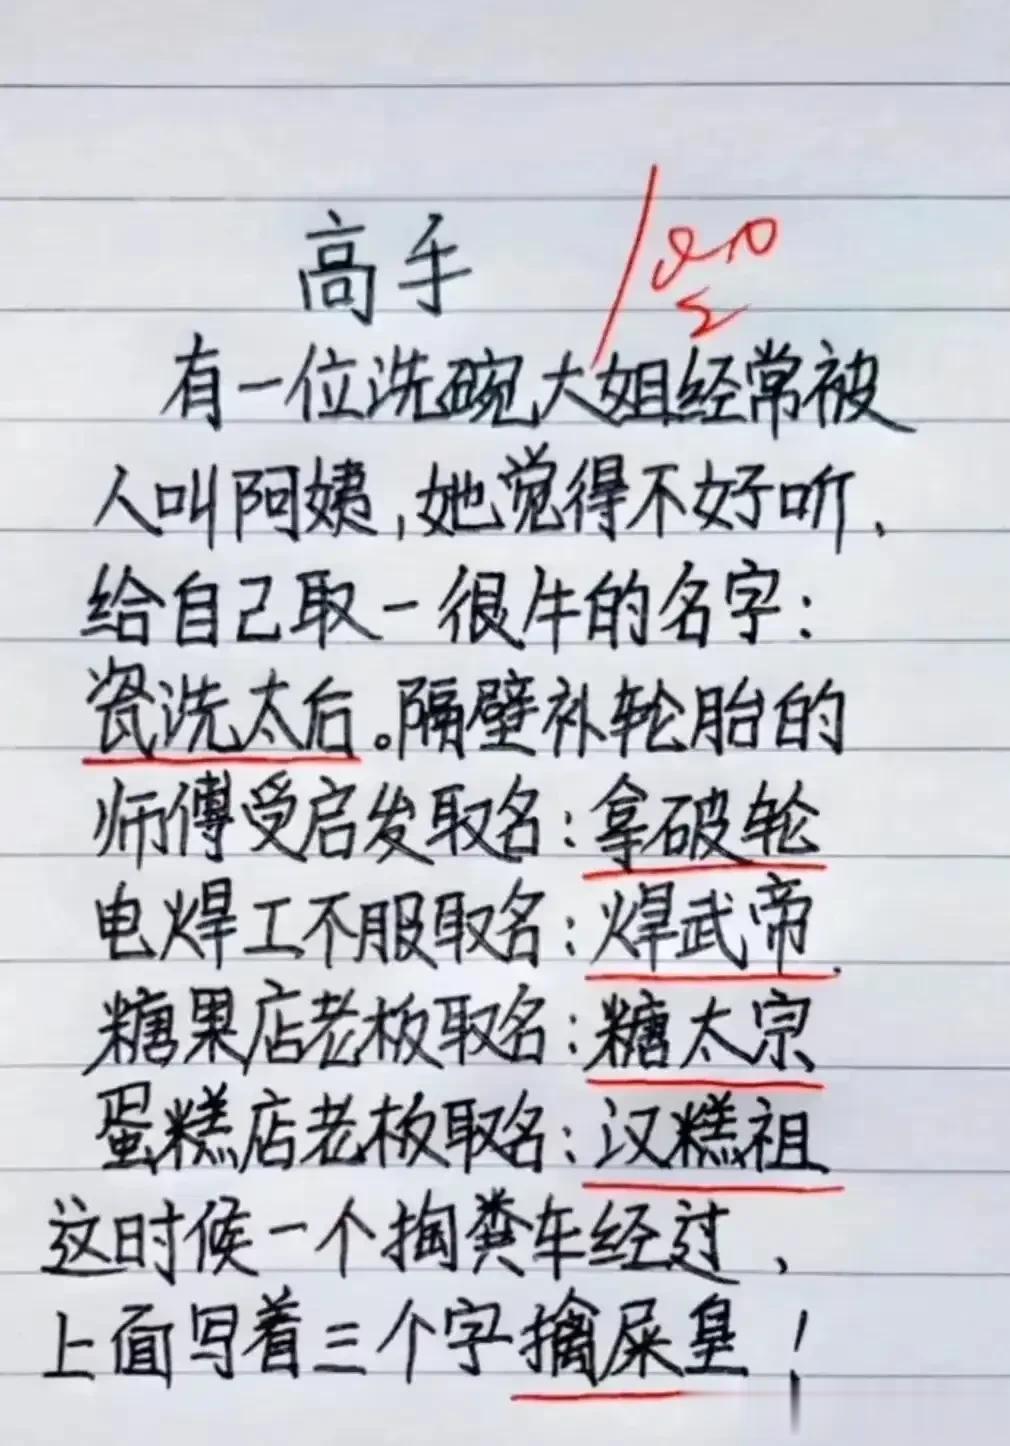 高手
有一位洗碗大姐经常被
人叫阿姨,她觉得不好听、
给自己取一很牛的名字:
瓷洗太后。隔壁补轮胎的
师傅受启发取名:拿破轮
电焊工不服取名:焊武帝
糖果店老板取名:糖太宗
蛋糕店老板取名:汉糕祖
这时候一个掏粪车经过、
上面写着三个字擒屎皇!